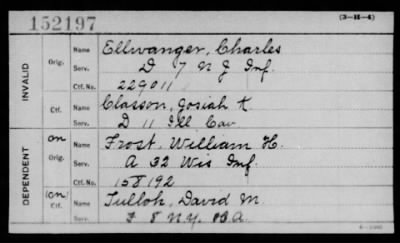 152197
(3-H-4)
INVALID
Orig.
Name Ellwanger, Charles
Serv. D 7 N J Inf.
Ctf. No. 229011
Ctf.
Name Classon, Josiah K
Serv. D 11 Ill Cav
DEPENDENT
on
Orig.
Name Frost, William H.
Serv. A 32 Wis Inf.
Ctf. No. 158192
(on)
Ctf.
Name Tulloh, David M.
Serv. F 8 N.Y. H A.